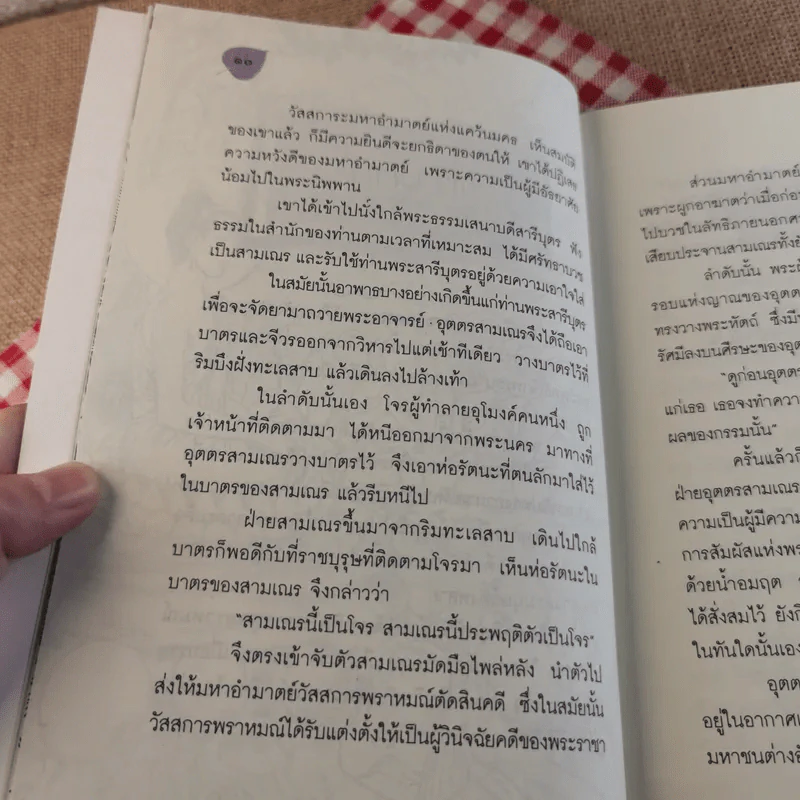 ๑๖
วัสสการะมหาอำมาตย์แห่งแคว้นมคธ เห็นสมบัติ
ของเขาแล้ว ก็มีความยินดีจะยกธิดาของตนให้ เขาได้ปฏิเสธ
ความหวังดีของมหาอำมาตย์ เพราะความเป็นผู้มีอัธยาศัย
น้อมไปในพระนิพพาน
เขาได้เข้าไปนั่งใกล้พระธรรมเสนาบดีสารีบุตร ฟัง
ธรรมในสำนักของท่านตามเวลาที่เหมาะสม ได้มีศรัทธาบวช
เป็นสามเณร และรับใช้ท่านพระสารีบุตรอยู่ด้วยความเอาใจใส่
ในสมัยนั้นอาพาธบางอย่างเกิดขึ้นแก่ท่านพระสารีบุตร
เพื่อจะจัดยามาถวายพระอาจารย์ อุตตรสามเณรจึงได้ถือเอา
บาตรและจีวรออกจากวิหารไปแต่เช้าทีเดียว วางบาตรไว้ที่
ริมบึงฝั่งทะเลสาบ แล้วเดินลงไปล้างเท้า
ในลำดับนั้นเอง โจรผู้ทำลายอุโมงค์คนหนึ่ง ถูก
เจ้าหน้าที่ติดตามมา ได้หนีออกมาจากพระนคร มาทางที่
อุตตรสามเณรวางบาตรไว้ จึงเอาห่อรัตนะที่ตนลักมาใส่ไว้
ในบาตรของสามเณร แล้วรีบหนีไป
ฝ่ายสามเณรขึ้นมาจากริมทะเลสาบ เดินไปใกล้
บาตรก็พอดีกับที่ราชบุรุษที่ติดตามโจรมา เห็นห่อรัตนะใน
บาตรของสามเณร จึงกล่าวว่า
"สามเณรนี้เป็นโจร สามเณรนี้ประพฤติตัวเป็นโจร"
จึงตรงเข้าจับตัวสามเณรมัดมือไพล่หลัง นำตัวไป
ส่งให้มหาอำมาตย์วัสสการพราหมณ์ตัดสินคดี ซึ่งในสมัยนั้น
วัสสการพราหมณ์ได้รับแต่งตั้งให้เป็นผู้วินิจฉัยคดีของพระราชา
ส่วนมหาอำมาตย์
เพราะผูกอาฆาตว่าเมื่อก่อน
ไปบวชในลัทธิภายนอก
เสียบประจานสามเณรทั้ง
ลำดับนั้น
รอบแห่งญาณของอุตต
ทรงวางพระหัตถ์ ซึ่งมี
รัศมีลงบนศีรษะของอุต
"ดูก่อนอุตตร
แก่เธอ เธอจงทำความ
ผลของกรรมนั้น"
ครั้นแล้ว
ฝ่ายอุตตรสามเณร
ความเป็นผู้มีความ
การสัมผัสแห่งพร
ด้วยน้ำอมฤต
ได้สั่งสมไว้
ในทันใดนั้นเอง
อุตต
อยู่ในอากาศ
มหาชนต่าง